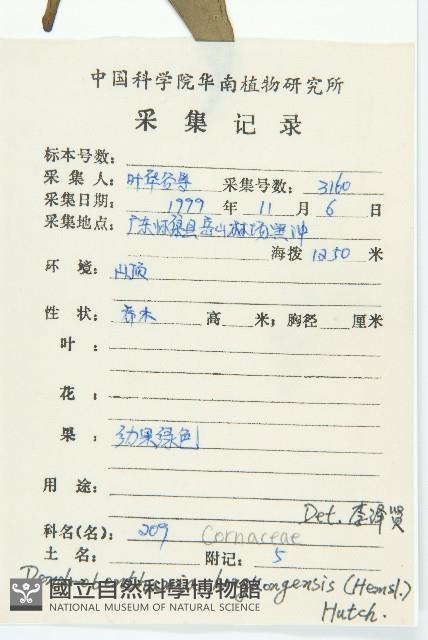 中国科学院华南植物研究所
采集记录
标本号数:
采集人: 叶华谷等 采集号数: 3160
采集日期: 1999 年 11 月 6 日
采集地点: 广东怀集县 山林场黑冲
海拨 1250 米
环境: 山顶
性状: 乔木 高 米; 胸径 厘米
叶:
花:
果: 幼果绿色
用途:
Det. 李泽贤
科名(名): 209 Cornaceae
土名: 附记: 5
hongkongensis (Hemsl.)
Hutch.
國立自然科學博物館
NATIONAL MUSEUM OF NATURAL SCIENCE